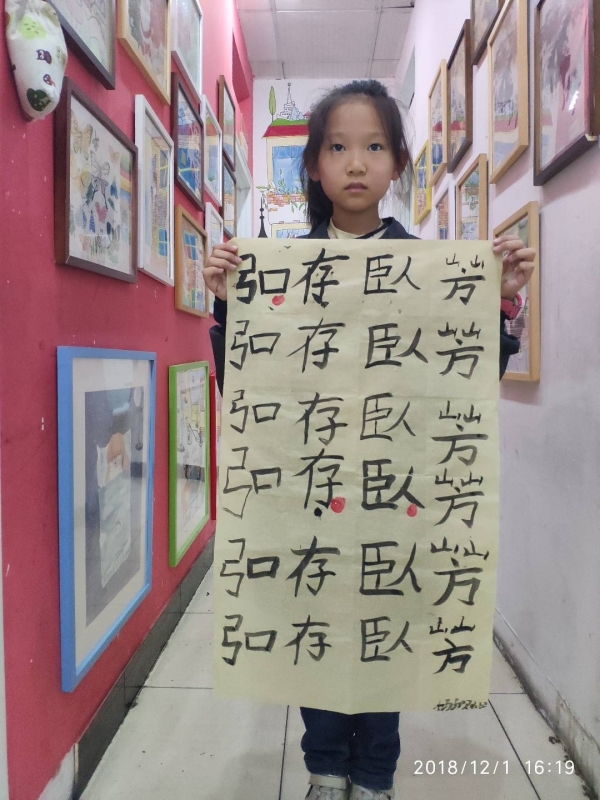 弘存臥芳
弘存臥芳
弘存臥芳
弘存臥芳
弘存臥芳
弘存臥芳
2018/12/1 16:19